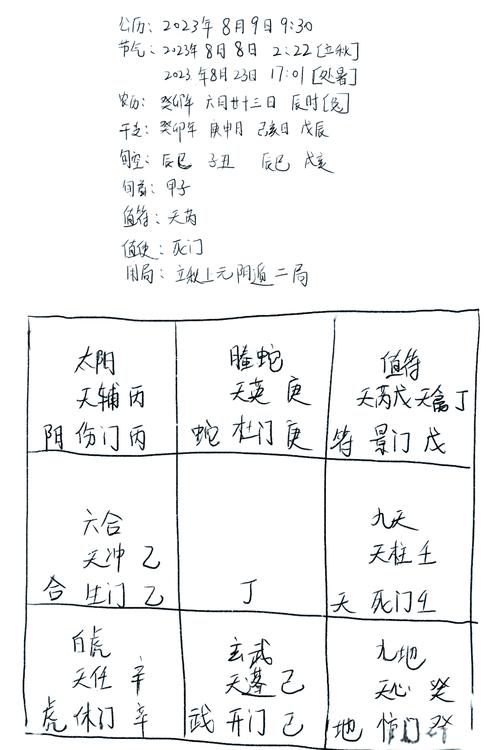 公历: 2023年8月9日9:30
节气: 2023年8月8日 2:22[立秋]
2023年8月23日 17:01[处暑]
农历: 癸卯年 六月廿十三日 辰时[兔]
干支: 癸卯年 庚申月 己亥日 戊辰
旬空: 辰巳 子丑 辰巳 戌亥
旬首: 甲子
值符: 天芮
值使: 死门
用局: 立秋上元阴遁二局
太阳
天辅 丙
阴 伤门 丙
螣蛇
天英 庚
蛇 杜门 庚
值符
天芮戊天禽丁
符 景门 戊
六合
天冲 乙
合 生门 乙
丁
九天
天柱 壬
天 死门 壬
白虎
天任 辛
虎 休门 辛
玄武
天蓬 己
武 开门 己
九地
天心 癸
地 惊门 癸